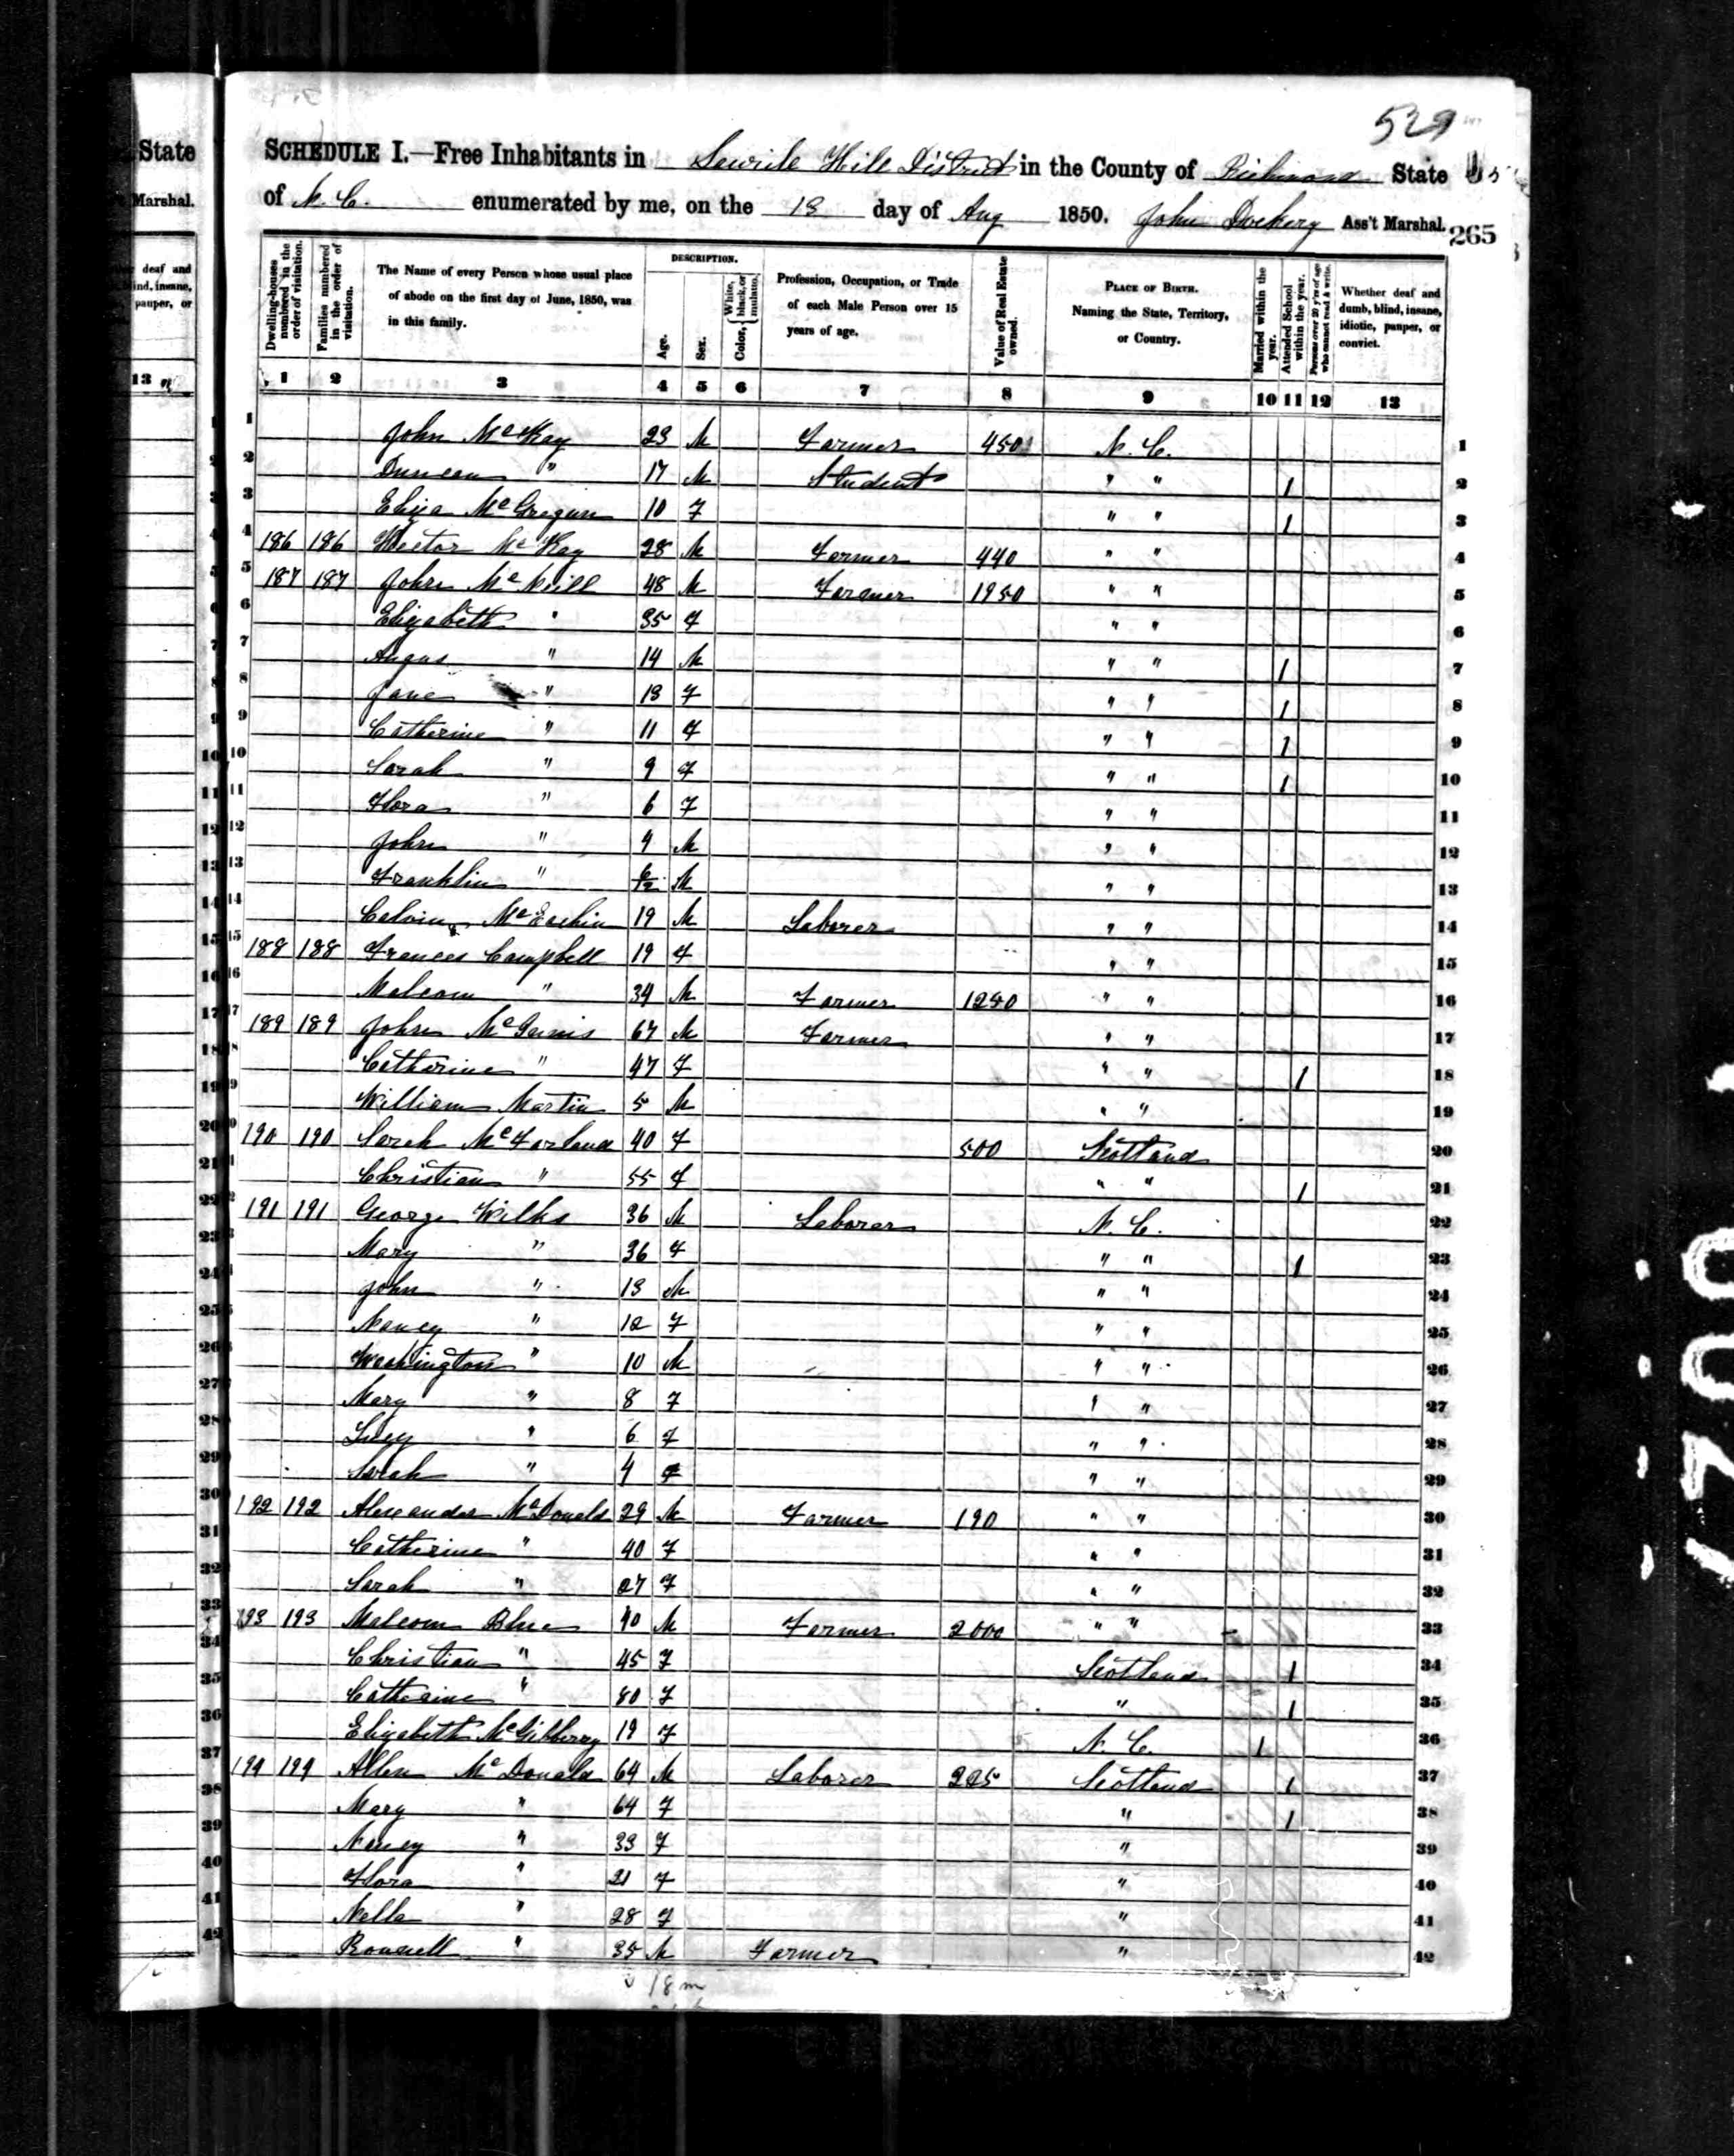 529
State
Marshal.
deaf and
blind, insane,
pauper, or
13
SCHEDULE I.—Free Inhabitants in Laurile Hill District in the County of Richmond State
of N. C. enumerated by me, on the 13 day of Aug 1850. John Dockery Ass't Marshal. 265
Dwelling-houses numbered in the order of visitation.
Families numbered in the order of visitation.
The Name of every Person whose usual place of abode on the first day of June, 1850, was in this family.
DESCRIPTION.
Age.
Sex.
Color, { White, black, or mulatto.
Profession, Occupation, or Trade of each Male Person over 15 years of age.
Value of Real Estate owned.
PLACE OF BIRTH. Naming the State, Territory, or Country.
Married within the year.
Attended School within the year.
Persons over 20 y'rs of age who cannot read & write.
Whether deaf and dumb, blind, insane, idiotic, pauper, or convict.
1 2 3 4 5 6 7 8 9 10 11 12 13
1 John McKay 23 M Farmer 450 N. C. 1
2 Duncan " 17 M Student " " 1 2
3 Eliza McGregur 10 F " " 1 3
4 186 186 Hector McKay 28 M Farmer 440 " " 4
5 187 187 John McNeill 48 M Farmer 1950 " " 5
6 Elizabeth " 35 F " " 6
7 Angus " 14 M " " 1 7
8 Jane " 13 F " " 1 8
9 Catherine " 11 F " " 1 9
10 Sarah " 9 F " " 1 10
11 Flora " 6 F " " 11
12 John " 4 M " " 12
13 Franklin " 6/12 M " " 13
14 Calvin McEachin 19 M Laborer " " 14
15 188 188 Frances Campbell 19 F " " 15
16 Malcom " 34 M Farmer 1240 " " 16
17 189 189 John McGinnis 67 M Farmer " " 17
18 Catherine " 47 F " " 1 18
19 William Martin 5 M " " 19
20 190 190 Sarah McFarland 40 F 500 Scotland 20
21 Christian " 55 F " " 1 21
22 191 191 George Wilks 36 M Laborer N. C. 22
23 Mary " 36 F " " 1 23
24 John " 13 M " " 24
25 Nancy " 12 F " " 25
26 Washington " 10 M " " 26
27 Mary " 8 F " " 27
28 Lucy " 6 F " " 28
29 Sarah " 4 F " " 29
30 192 192 Alexander McDonald 29 M Farmer 190 " " 30
31 Catherine " 40 F " " 31
32 Sarah " 27 F " " 32
33 193 193 Malcom Blue 40 M Farmer 2000 " " 33
34 Christian " 45 F Scotland 1 34
35 Catherine " 80 F " 1 35
36 Elizabeth McGibberry 19 F N. C. 1 36
37 194 194 Allen McDonald 64 M Laborer 225 Scotland 1 37
38 Mary " 64 F " 1 38
39 Nancy " 33 F " 39
40 Flora " 21 F " 40
41 Nelle " 28 F " 41
42 " 35 M Farmer " 42
18 m